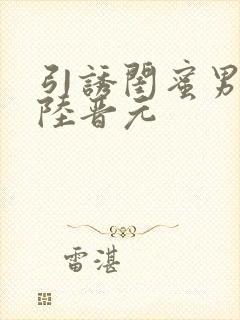 引誘閨蜜男
陸晋元
雷湛